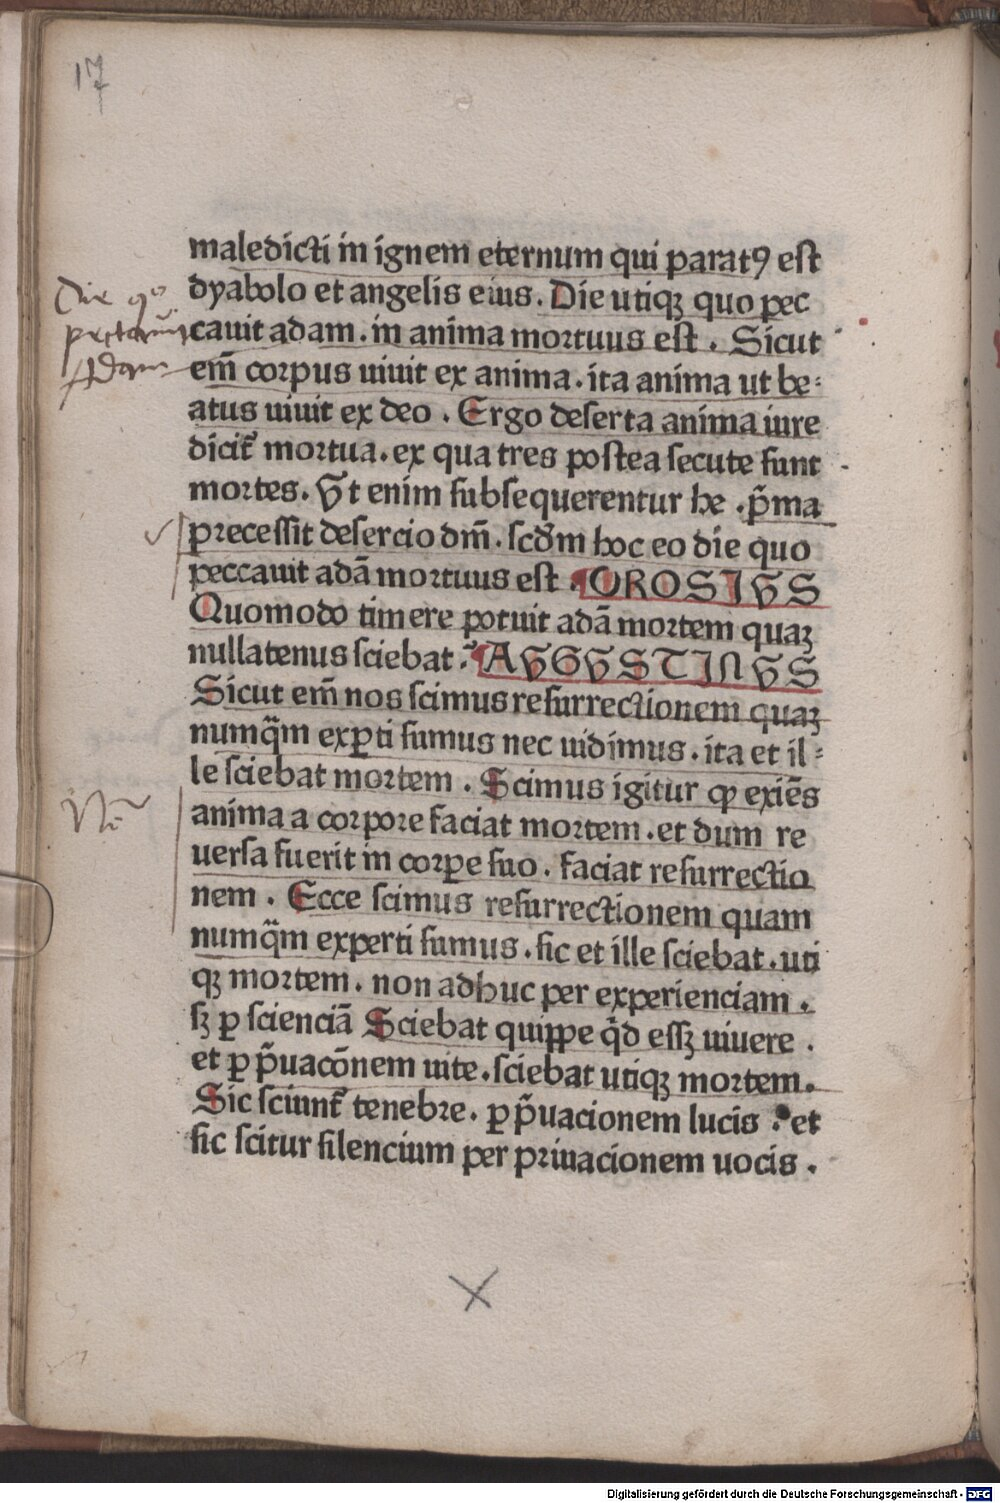 17
maledicti in ignem eternum qui paratꝰ est
dyabolo et angelis eius. Die utiqꝫ quo pec
Die qͦ
peccauit
Adam
cauit adam. in anima mortuus est. Sicut
em̄ corpus uiuit ex anima. ita anima ut be⸗
atus uiuit ex deo. Ergo deserta anima iure
dicit᷑ mortua. ex qua tres postea secute sunt
mortes. Vt enim subsequerentur he. p̃ma
precessit desercio dm̄. scd̃m hoc eo die quo
peccauit adā mortuus est. ¶ OROSIVS
Quomodo timere potuit adā mortem quaꝫ
nullatenus sciebat. ¶ AVGVSTINVS
Sicut em̄ nos scimus resurrectionem quaꝫ
numq̃m exꝑti sumus nec uidimus. ita et il⸗
le sciebat mortem. Scimus igitur ꝙ exiēs
Nō
anima a corpore faciat mortem. et dum re
uersa fuerit in corꝑe suo. faciat resurrectio
nem. Ecce scimus resurrectionem quam
numq̃m experti sumus. sic et ille sciebat. uti
qꝫ mortem. non adhuc per experienciam.
sꝫ ꝑ scienciā Sciebat quippe q̇d essꝫ uiuere.
et ꝑ p̃uacōnem uite. sciebat utiqꝫ mortem.
Sic sciunt᷑ tenebre. ꝑ p̃uacionem lucis. et
sic scitur silencium per priuacionem uocis.
Digitalisierung gefördert durch die Deutsche Forschungsgemeinschaft - DFG